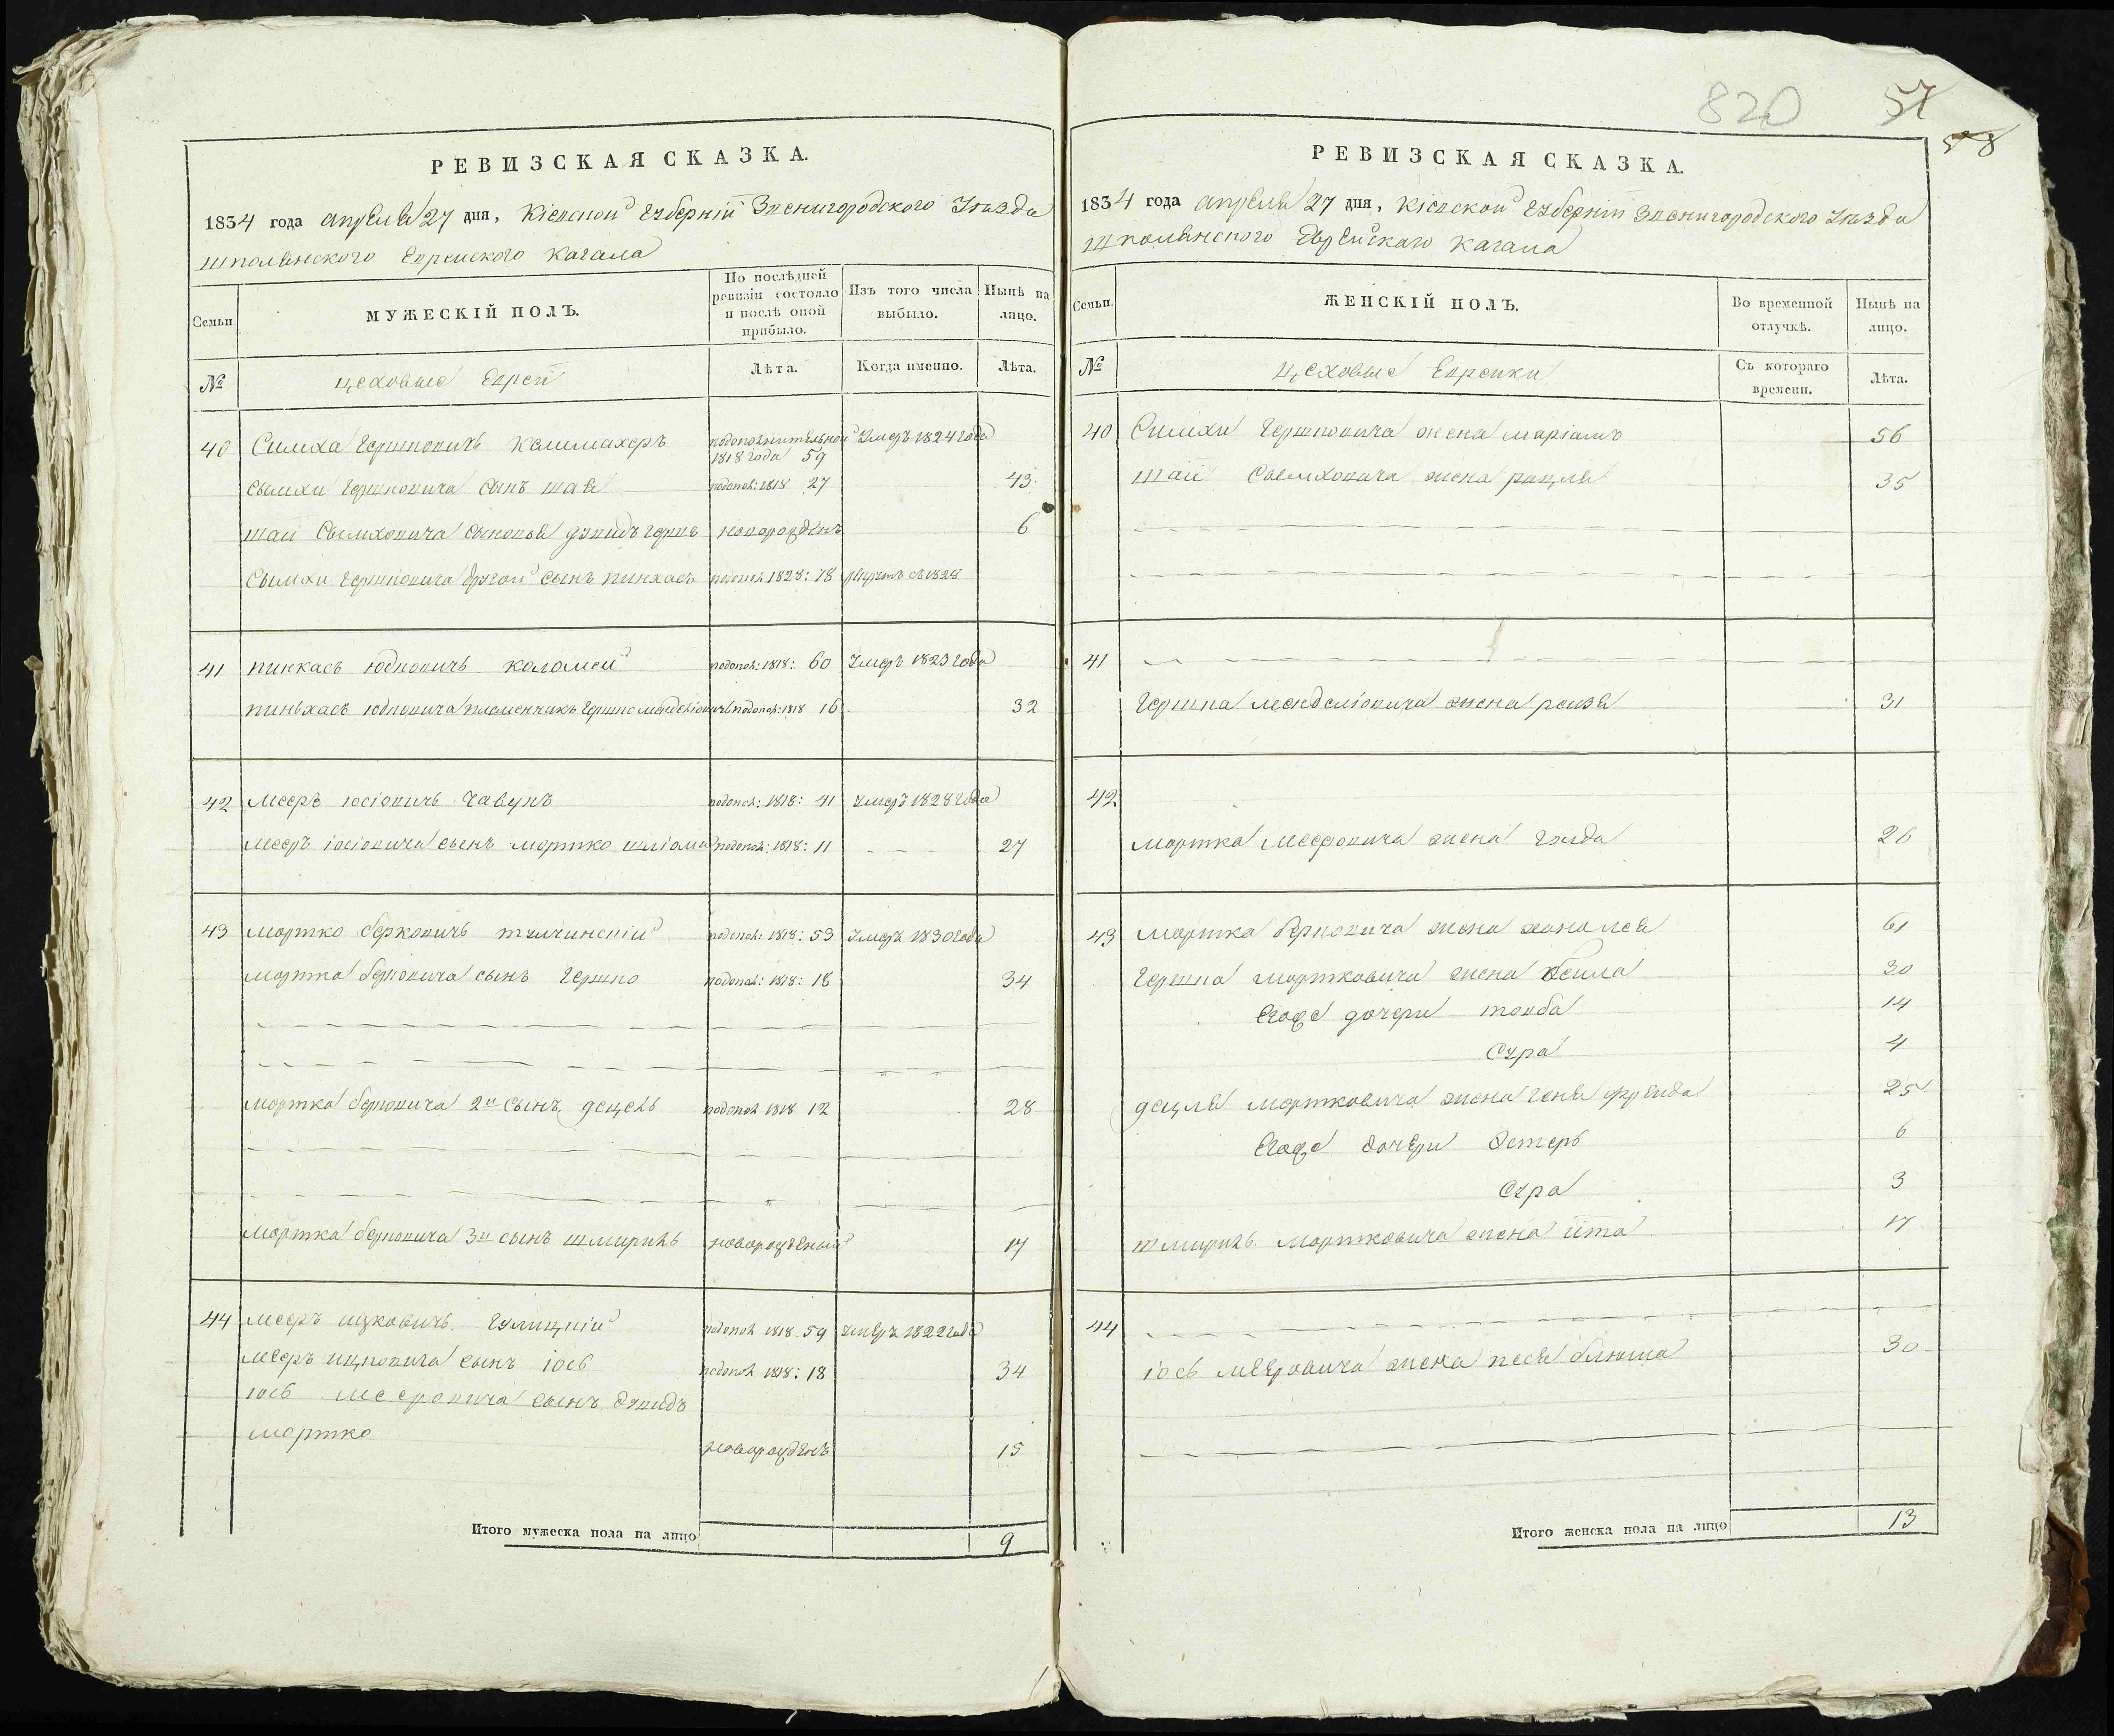 820
57
58
РЕВИЗСКАЯ СКАЗКА.
1834 года апреля 27 дня, Кіевской Губерніи Звенигородского Уезда
шполянского Еврейского Кагала
Семьи
МУЖЕСКІЙ ПОЛЪ.
По послѣдней ревизіи состояло и послѣ оной прибыло.
Изъ того числа выбыло.
Нынѣ на лицо.
№
цеховые Евреи
Лѣта.
Когда именно.
Лѣта.
40 Симха Гершковичъ Калимахеръ подополнительной 1818 года 59 Умеръ 1824 года
Сымхи Гершковича сынъ шая подопол: 1818 27 43
шаи Сымховича сыновья давидъ гершъ новорожденъ 6
Сымхи Гершковича другой сынъ пинхасъ подопол 1828: 18 рекрутъ съ 1828
41 пинкасъ юдковичъ коломей подопол: 1818: 60 Умеръ 1823 года
пиньхасъ юдковича племенникъ Гершко мендельіовичъ подопол: 1818 16 32
42 мееръ іосіовичъ Чавунъ подопол: 1818: 41 умеръ 1828 года
мееръ іосіовича сынъ мортко шліома подопол: 1818: 11 27
43 мортко берковичъ тулчинскій подопол: 1818: 53 Умеръ 1830 года
мортка берковича сынъ Гершко подопол: 1818: 18 34
мортка берковича 2й сынъ децель подопол 1818 12 28
мортка берковича 3й сынъ шмариль новорожденый 17
44 мееръ ицковичъ Гулицкій подопол 1818 59 умеръ 1822 года
мееръ ицковича сынъ іось подопол 1818: 18 34
іось мееровича сынъ давидъ
мортко новорожденъ 15
Итого мужеска пола на лицо 9
РЕВИЗСКАЯ СКАЗКА.
1834 года апреля 27 дня, Кіевской Губерніи Звенигородского Уезда
Шполянского Еврейскаго Кагала
Семьи.
ЖЕНСКІЙ ПОЛЪ.
Во временной отлучкѣ.
Нынѣ на лицо.
№
цеховые Еврейки
Съ котораго времени.
Лѣта.
40 Симхи Гершковича жена маріамъ 56
шаи Сымховича жена рацля 35
41
Гершка менделіовича жена рейзя 31
42
мортка мееровича жена голда 26
43 мортка берковича жена хана лея 61
Гершка мортковича жена бейла 30
Егоже дочери товба 14
Сура 4
децля мортковича жена геня фрейда 25
Егоже дочери Эстеръ 6
Сура 3
шмариль мортковича жена ита 17
44
іось мееровича жена песя блюма 30
Итого женска пола на лицо 13